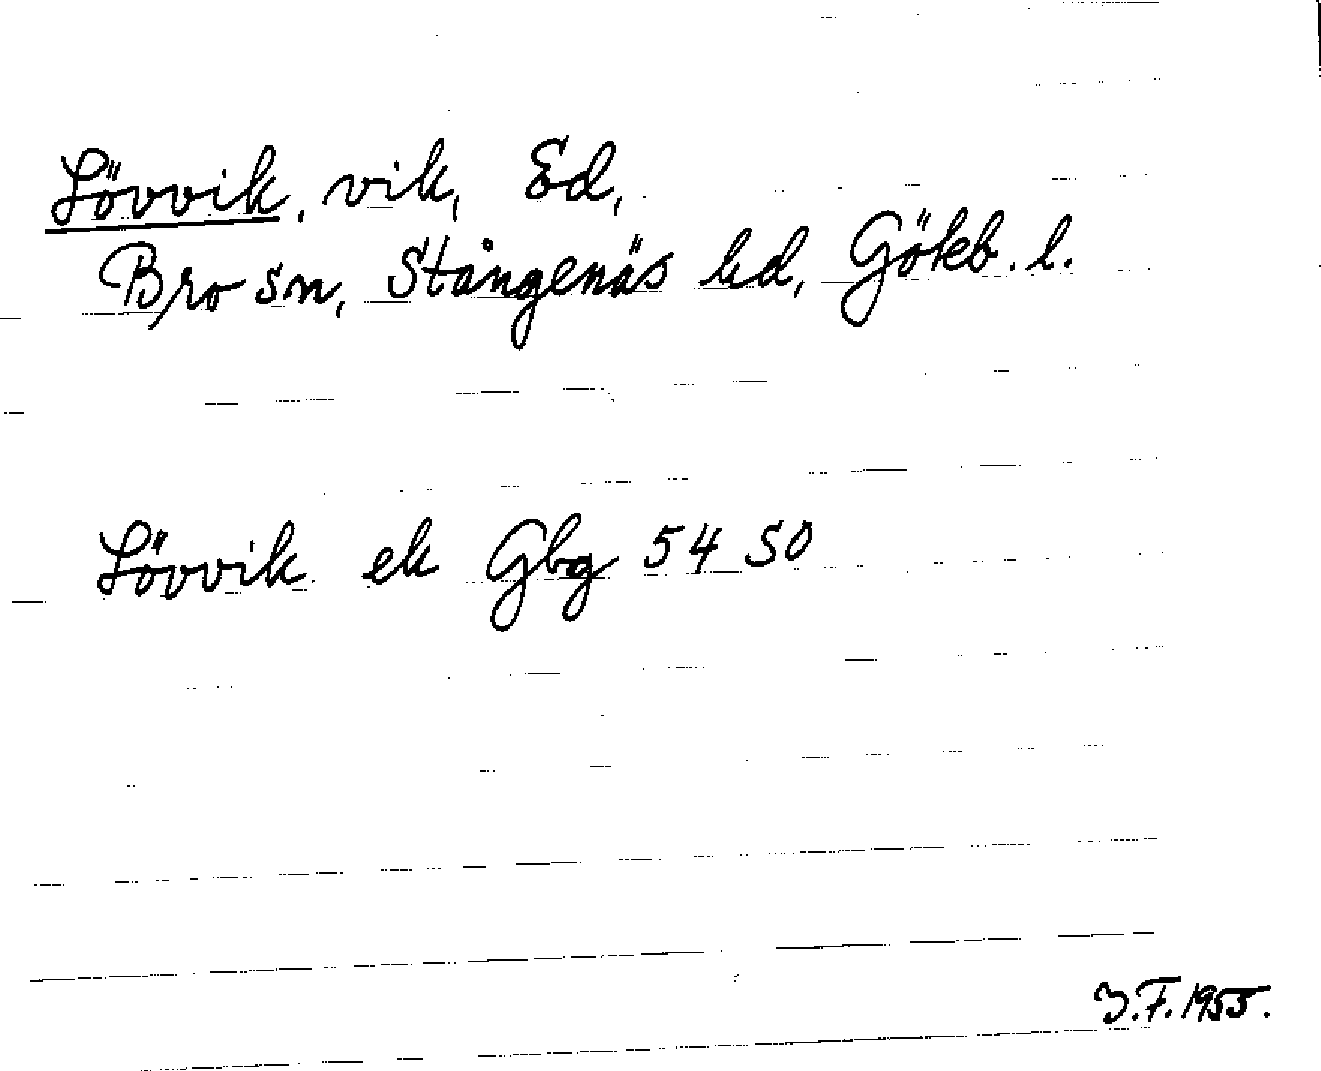 Lövvik, vik, Ed,
Bro sn, Stångenäs hd, Göteb. l.
Lövvik ek Gbg 54 SO
J.F. 1955.